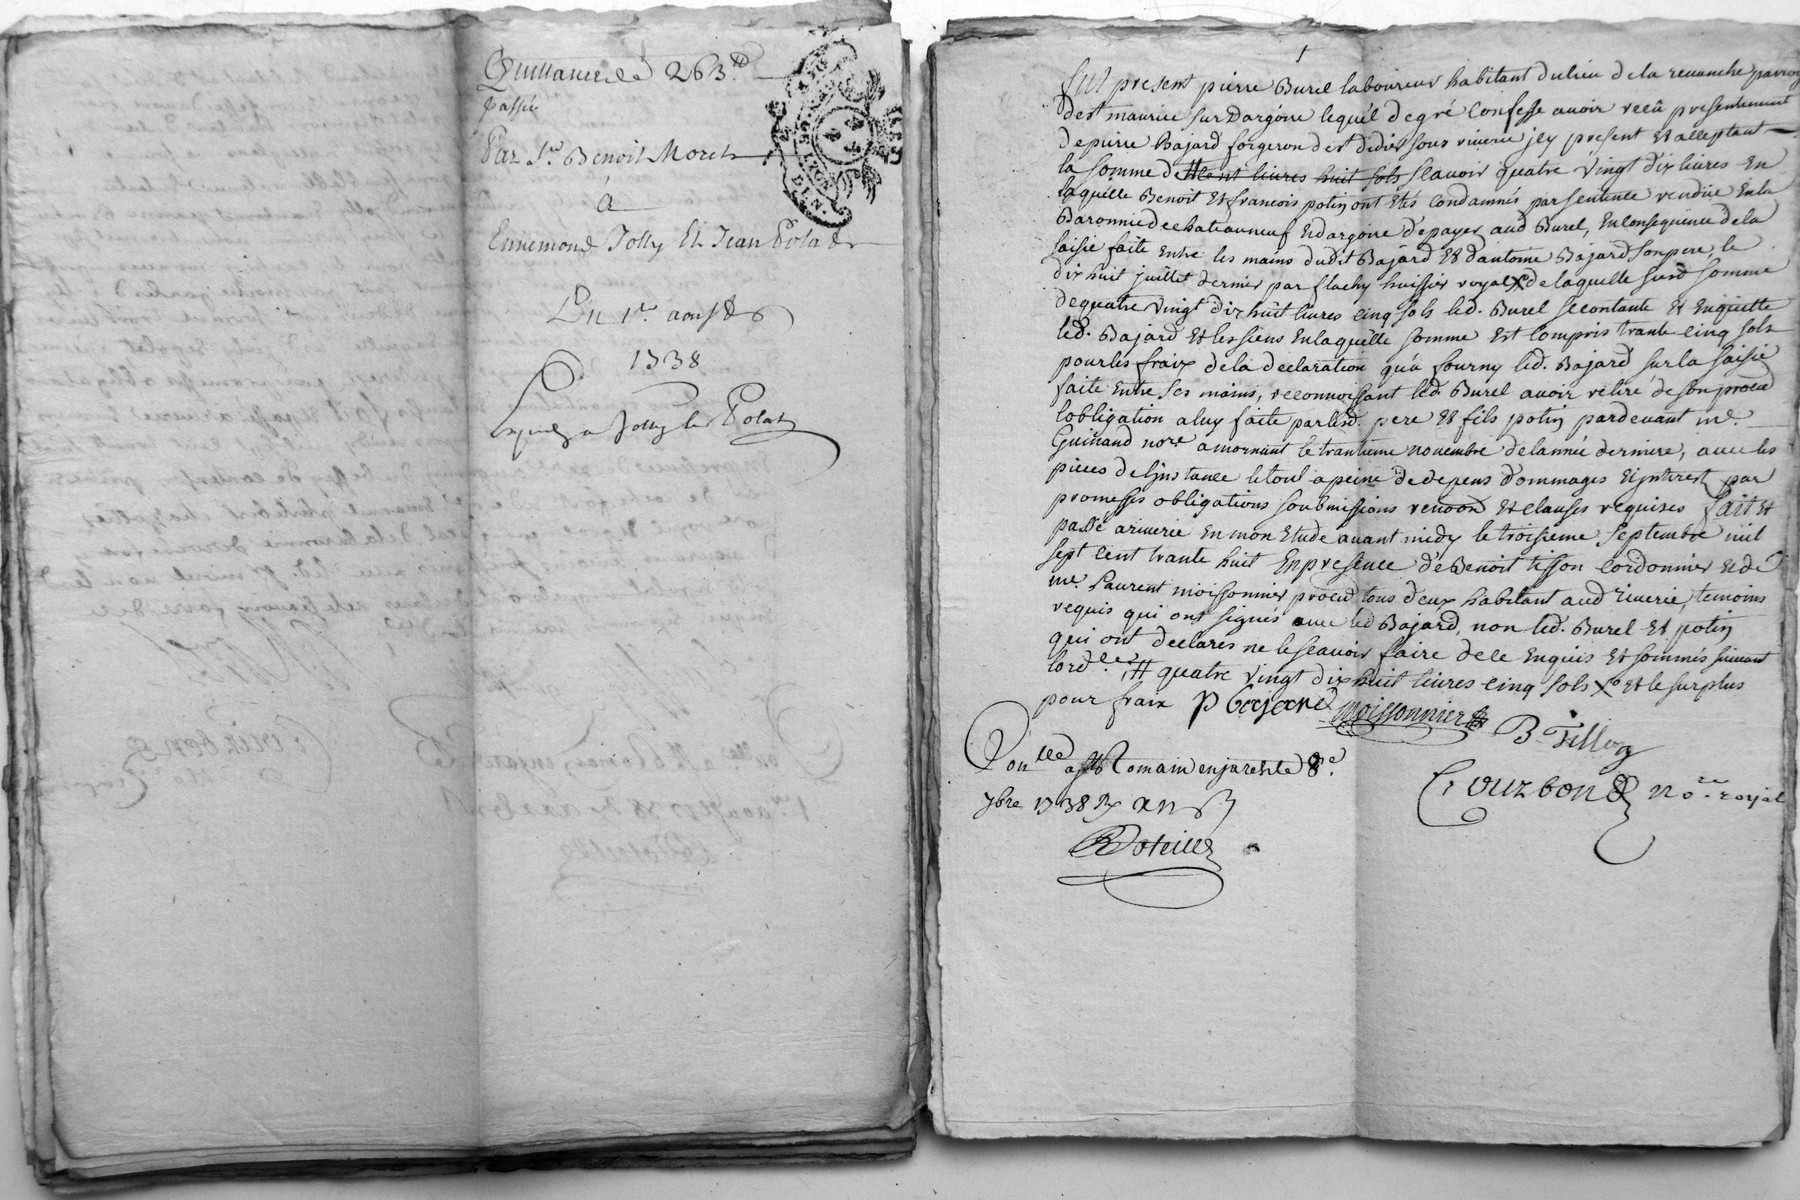 Quittance de 263 ₶
passée
Par Sr. Benoit Morel
à
Ennemond Jolly Et Jean Polat
Du 1er. aoust
1738
Expedié a Jolly et Polat
GEN. LYON
Fut present pierre Burel laboureur habitant du lieu de la revanche parroisse
de st maurice sur Dargoire lequel de gré Confesse avoir recû presentement
de pierre Bajard forgeron de st didier sous riverie jcy present et acceptant
la somme de cent livres huit sols scavoir quatre vingt dix livres En
laquelle Benoit Et francois potin ont Etés Condamnés par sentence rendüe En la
Baronnie de chateauneuf Et dargoire depayer aud Burel, En Consequence de la
saisie faite Entre les mains dudit Bajard Et dantoine Bajard son pere, le
dix huit juillet dernier par flachy huissier royal X de laquelle susd somme
de quatre vingt dix huit livres cinq sols led. Burel se contante Et En quitte
led. Bajard Et les siens En laquelle somme Est Compris trante cinq sols
pour les fraix de la declaration qu'a fourny led. Bajard sur la saisie
faite Entre ses mains, reconnoissant led. Burel avoir retiré de son procu
lobligation a luy faite par lesd. pere Et fils potin pardevant me.
Guinand nore. a mornant le trantieme novembre de lannée derniere, avec les
pieces de ljnstance le tout a peine de depens dommages Et jnterest par
promesses obligations soubmissions renoon Et clauses requises fait Et
passé a riverie En mon Etude avant midy le troisieme septembre mil
sept cent trante huit En presence de Benoit tisson Cordonnier Et de
me. Laurent moissonnier procu tous deux habitant aud riverie, temoins
requis qui ont signés avec led Bajard, non led. Burel Et potin
qui ont declarés ne le scavoir faire de ce Enquis Et sommés suivant
lordce. # quatre vingt dix huit livres cinq sols X Et le surplus
pour fraix P Bajard moissonnier
B Tisson
Conlle a St Romain en jarest le 8e.
7bre 1738 Rx
Doteilles
Couzbon nore royal